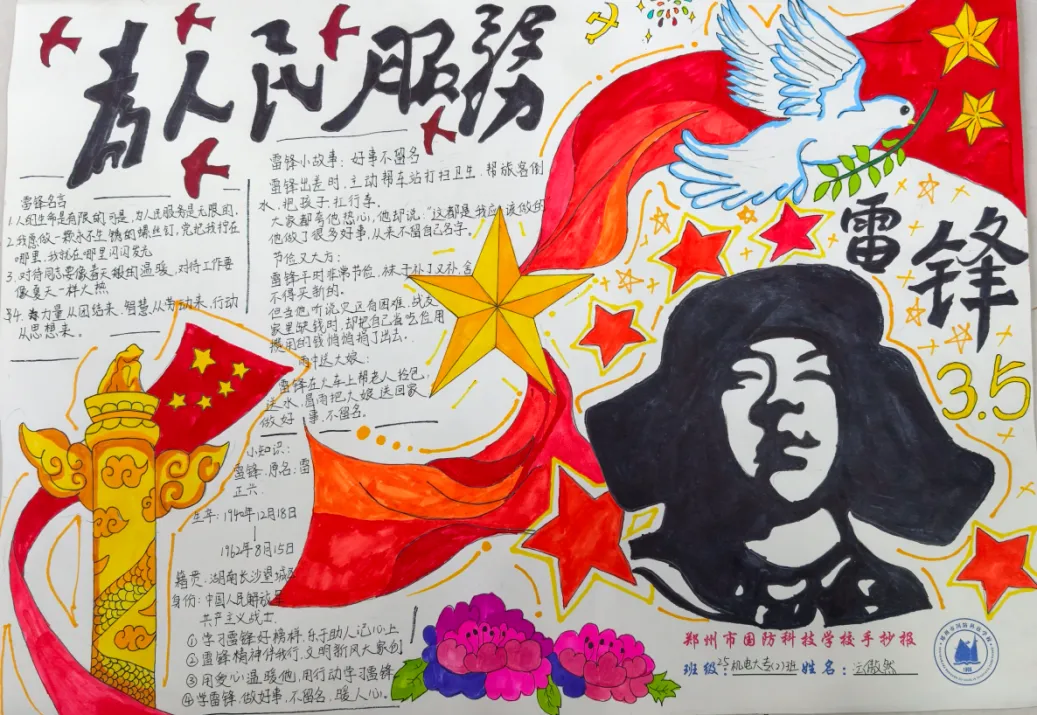 為人民服務
雷锋名言
1.人的生命是有限的,可是,为人民服务是无限的,
2.我愿做一颗永不生锈的螺丝钉,党把我拧在
哪里,我就在哪里闪闪发光
3.对待同志要像春天般的温暖,对待工作要
像夏天一样火热
4.力量从团结来,智慧从劳动来,行动
从思想来。
雷锋小故事:好事不留名
雷锋出差时,主动帮车站打扫卫生,帮旅客倒
水,抱孩子,扛行李。
大家都夸他热心,他却说:“这都是我应该做的
他做了很多好事,从来不留自己名字。
节俭又大方:
雷锋平时非常节俭,袜子补了又补,舍
不得买新的。
但当他听说灾区有困难、战友
家里缺钱时,却把自己省吃俭用
攒用的钱悄悄捐了出去。
雨中送大娘:
雷锋在火车上帮老人拾包,
送水,冒雨把大娘送回家
做好事,不留名。
小知识:
雷锋,原名:雷
正兴.
生卒:1940年12月18日
1962年8月15日
籍贯:湖南长沙望城
身份:中国人民解放
共产主义战士
①学习雷锋好榜样,乐于助人记心上
②雷锋精神伴我行,文明新风大家创
③用爱心温暖他,用行动学习雷锋
④学雷锋,做好事,不留名,暖人心。
雷锋
3.5
郑州市国防科技学校手抄报
班级:25机电大专(2)班 姓名: